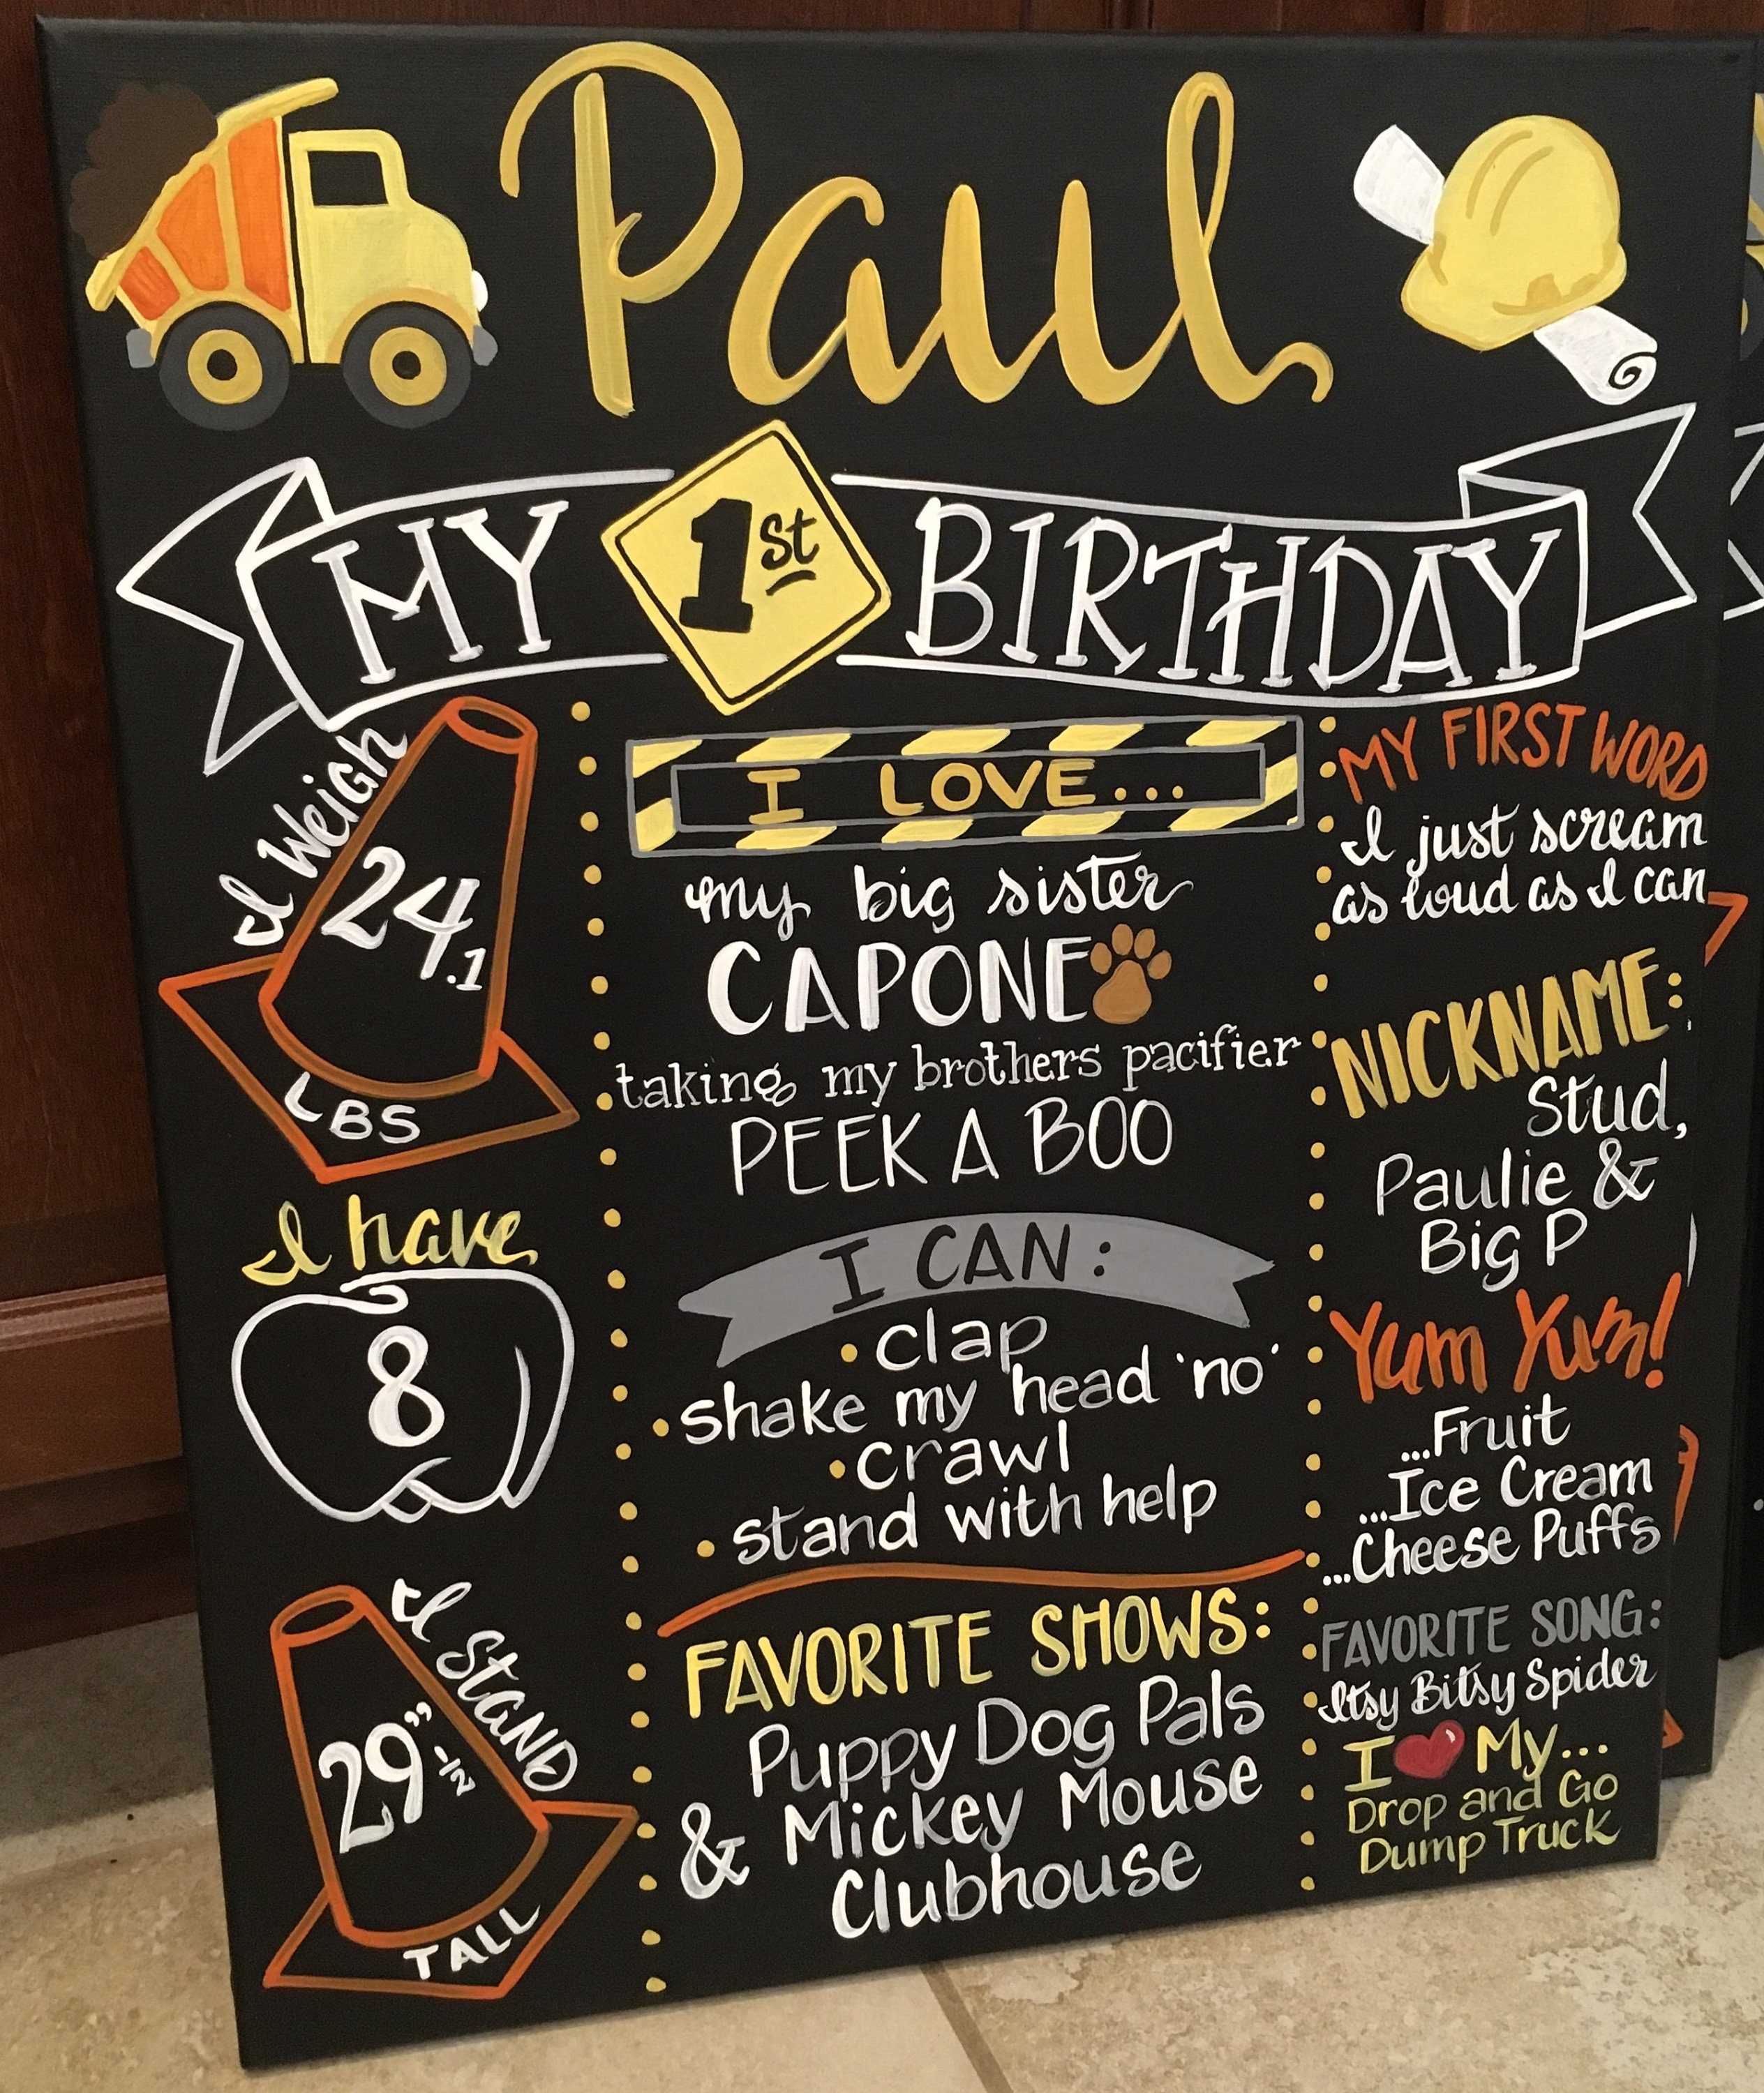 Paul
MY 1st BIRTHDAY
I Weigh
24.1
LBS
I have
8
I STAND
29" -IN
TALL
I LOVE...
my big sister
CAPONE
taking my brothers pacifier
PEEK A BOO
I CAN:
• clap
• shake my head 'no'
• crawl
• stand with help
FAVORITE SHOWS:
Puppy Dog Pals
& Mickey Mouse
Clubhouse
MY FIRST WORD
I just scream
as loud as I can
NICKNAME:
Stud,
Paulie &
Big P
Yum Yum!
...Fruit
...Ice Cream
...Cheese Puffs
FAVORITE SONG:
Itsy Bitsy Spider
I ❤ My...
Drop and Go
Dump Truck